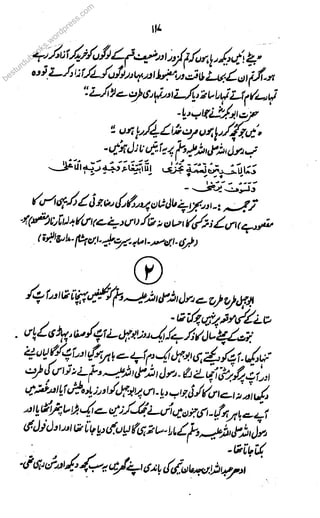 ۱۱۷
besturdubooks.wordpress.com
”بیٹے! میں دیکھ رہا ہوں کہ تم کمزور اور ضعیف قسم کے لوگوں کو خرید کر آزاد کر رہے
ہو۔ اگر تم ان کے بجائے طاقت ور مضبوط اور بہادر لوگوں کو لے کر آزاد کرتے تو وہ
تمہارے کام آتے تمہارا ساتھ دیا کرتے اور تمہاری طرف سے لڑا کرتے“
حضرت ابوبکرؓ نے جواب دیا۔
”میں جو کچھ کر رہا ہوں صرف خدا کے لیے کر رہا ہوں“
تب رسول اللہ صلی اللہ علیہ وسلم پر یہ آیتیں نازل ہوئیں۔
وَمَا لِاَحَدٍ عِنْدَهٗ مِنْ نِّعْمَةٍ تُجْزٰى اِلَّا ابْتِغَآءَ وَجْهِ رَبِّهِ الْاَعْلٰى
وَلَسَوْفَ يَرْضٰى
ترجمہ :۔ اور بجز اپنے عالی شان پروردگار کی رضا جوئی کے کہ یہی اس کا
مقصود ہے) اس کے ذمہ کسی کا احسان نہ تھا کہ (اس دینے سے) اس کا بدلہ اتارنا (مقصود) ہو
(طبری۔ ابن سعد۔ اصابہ۔ سیرت حلبیہ۔ ابن ہشام۔ مدارج النبوۃ)
۲
ابوجہل طرح طرح سے رسول اللہ صلی اللہ علیہ وسلم کو تکلیفیں پہنچاتا تھا اور آپ کو
ستانے کے کسی موقعہ پر نہیں چوکتا تھا۔
نبوت کے چھٹے سال کا ذکر ہے کہ ایک روز ابوجہل نے آپ کو صفا پہاڑی کے پاس
تنہا دیکھا۔ آپ کو دیکھتے ہی ابوجہل ایک دم آپے سے باہر ہو گیا اور آپ کو گالیاں دینے
اور آپ پر گوبر مٹی اچھالنے لگا۔ رسول اللہ صلی اللہ علیہ وسلم نے نہ تو اس کی طرف
دیکھا اور نہ اسے اس کا کوئی جواب دیا۔ اس پر ابوجہل کو اور زیادہ طیش آیا اور غصہ میں
آپے سے باہر ہو گیا۔ اسی جنون میں اس نے جھک کر زمین سے ایک بڑا سا پتھر اٹھایا اور
رسول اللہ صلی اللہ علیہ وسلم کے مارا۔ ساتھ ہی گالیاں بھی دیا جاتا تھا اور اول فول بھی
بکتا جاتا تھا۔
ادھر عبداللہ ابن جدعان تیمی کی باندی اپنے گھر میں یہ سب کچھ دیکھ اور سن رہی تھی۔